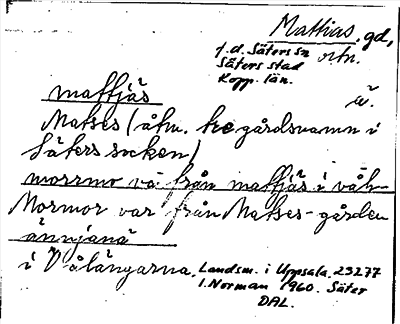 Mattias, gd,
f.d. Säters sn ortn.
Säters stad
Kopp. län.
mattjäs u.
Matses (åtm. tre gårdsnamn i
Säters socken)
morrmo va från mattjäs i våh-
Mormor var från Matses-gården
ännjana
i Vålängarna.
Landsm. i Uppsala. 23277
I. Norman 1960. Säter
DAL.